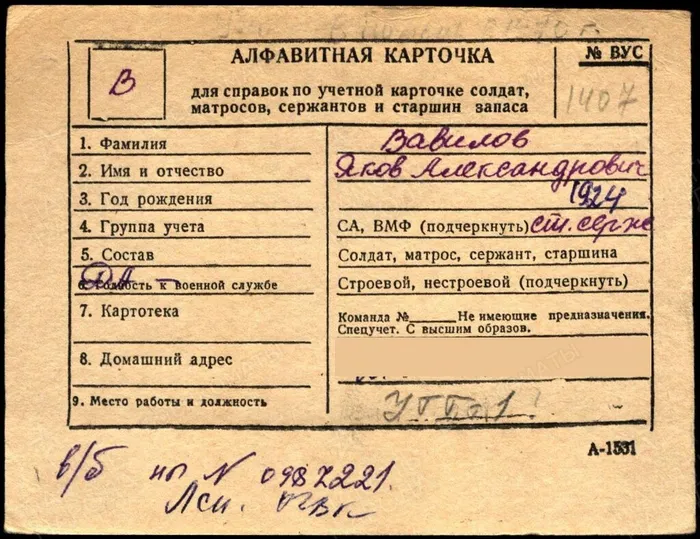 АЛФАВИТНАЯ КАРТОЧКА
№ ВУС
В
для справок по учетной карточке солдат,
матросов, сержантов и старшин запаса
1407
1. Фамилия
Вавилов
2. Имя и отчество
Яков Александрович
3. Год рождения
1924
4. Группа учета
СА, ВМФ (подчеркнуть) ст. серж
5. Состав
Солдат, матрос, сержант, старшина
6. Годность к военной службе
Строевой, нестроевой (подчеркнуть)
7. Картотека
Команда №______ Не имеющие предназначения.
Спецучет. С высшим образов.
8. Домашний адрес
9. Место работы и должность
А-1531
в/б НЫ N 0987221.